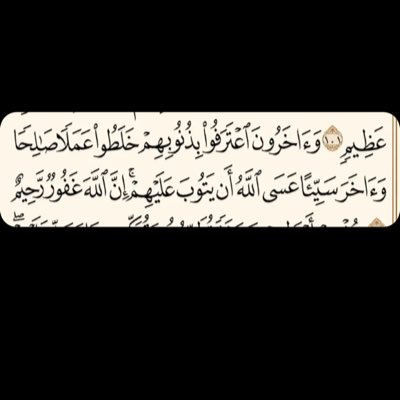 عَظِيمٖ ١٠١ وَءَاخَرُونَ ٱعۡتَرَفُواْ بِذُنُوبِهِمۡ خَلَطُواْ عَمَلٗا صَٰلِحٗا
وَءَاخَرَ سَيِّئًا عَسَى ٱللَّهُ أَن يَتُوبَ عَلَيۡهِمۡۚ إِنَّ ٱللَّهَ غَفُورٞ رَّحِيمٌ